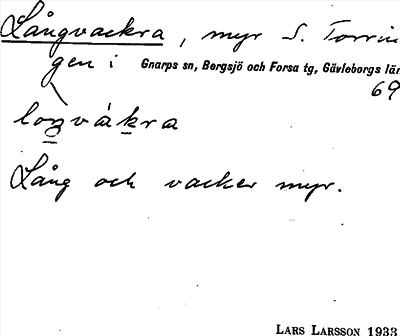 Långvackra, myr S. Torrin
gen i Gnarps sn, Bergsjö och Forsa tg, Gävleborgs län
69
loŋvàkra
Lång och vacker myr.
LARS LARSSON 1933